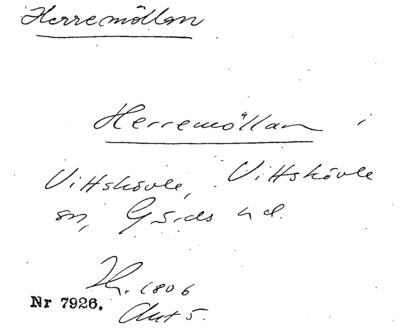 Herremöllan
Herremöllan i
Vittskövle, Vittskövle
sn, Gärds hd.
1806
Nr 7926. Akt 5.